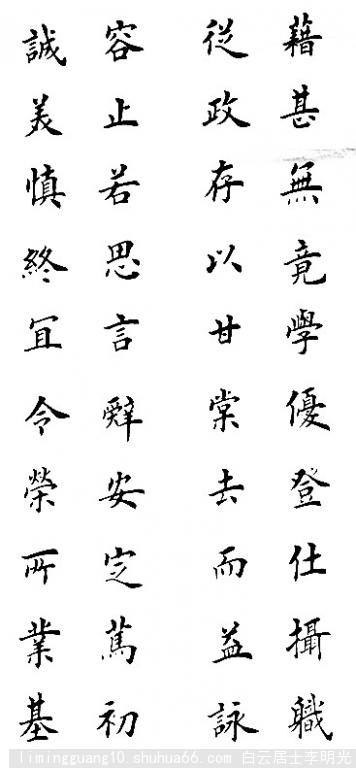 藉甚無竟學優登仕攝軄
從政存以甘棠去而益詠
容止若思言辭安定篤初
誠美慎終冝令榮所業基
limingguang10.shuhua66.com 白云居士李明光